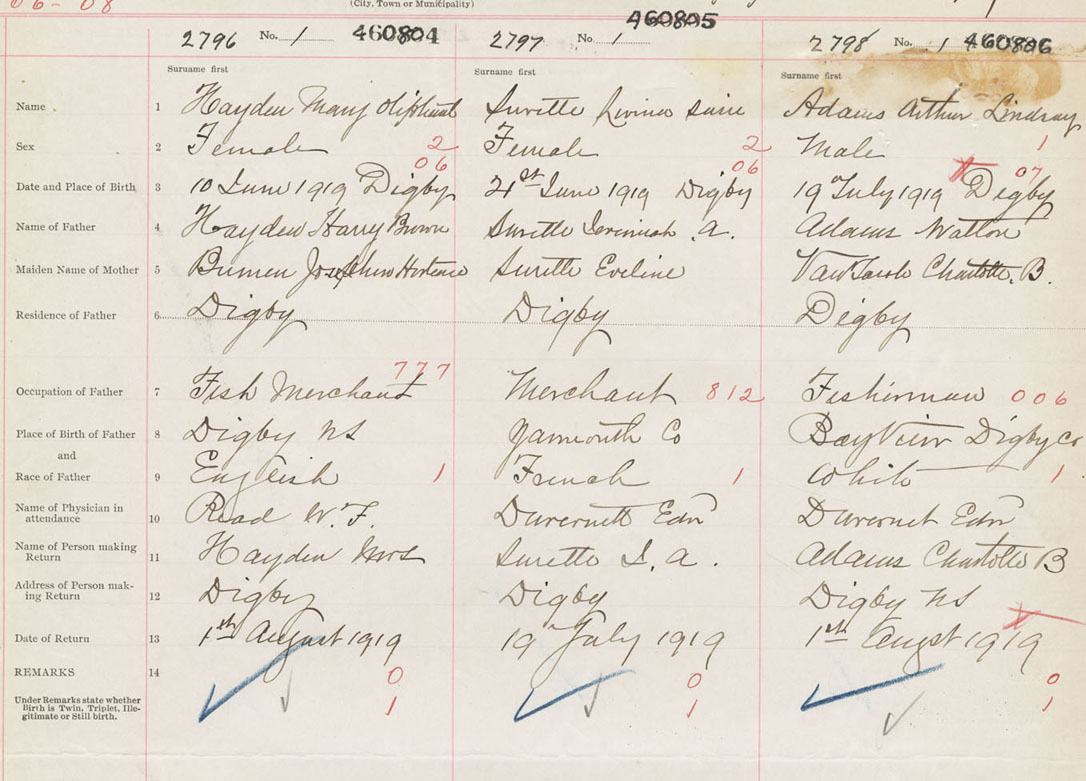 06-08
(City, Town or Municipality)
2796 No. 1 460804 2797 No. 1 460805 2798 No. 1 460806
Surname first Surname first Surname first
Name 1 Hayden Mary Oliphant Surette Adams Arthur Lindsay
Sex 2 Female 2 Female 2 Male 1
06 06 07
Date and Place of Birth 3 10 June 1919 Digby 21st June 1919 Digby 19 July 1919 Digby
Name of Father 4 Hayden Harry Brown Surette Jeremiah A. Adams Watton
Maiden Name of Mother 5 Josephine Hortense Surette Eveline VanTassle Charlotte. B.
Residence of Father 6 Digby Digby Digby
777
Occupation of Father 7 Fish Merchant Merchant 812 Fisherman 006
Place of Birth of Father 8 Digby NS Yarmouth Co Bay View Digby Co
and
Race of Father 9 English 1 French 1 White 1
Name of Physician in
attendance 10 Read W. F. Duvernett Edn Duvernet Edn
Name of Person making
Return 11 Hayden Mrs Surette J. A. Adams Charlotte B
Address of Person mak-
ing Return 12 Digby Digby Digby NS
Date of Return 13 1th August 1919 19 July 1919 1th Augst 1919
REMARKS 14 0 0 0
Under Remarks state whether
Birth is Twin, Triplet, Ille-
gitimate or Still birth. 1 1 1